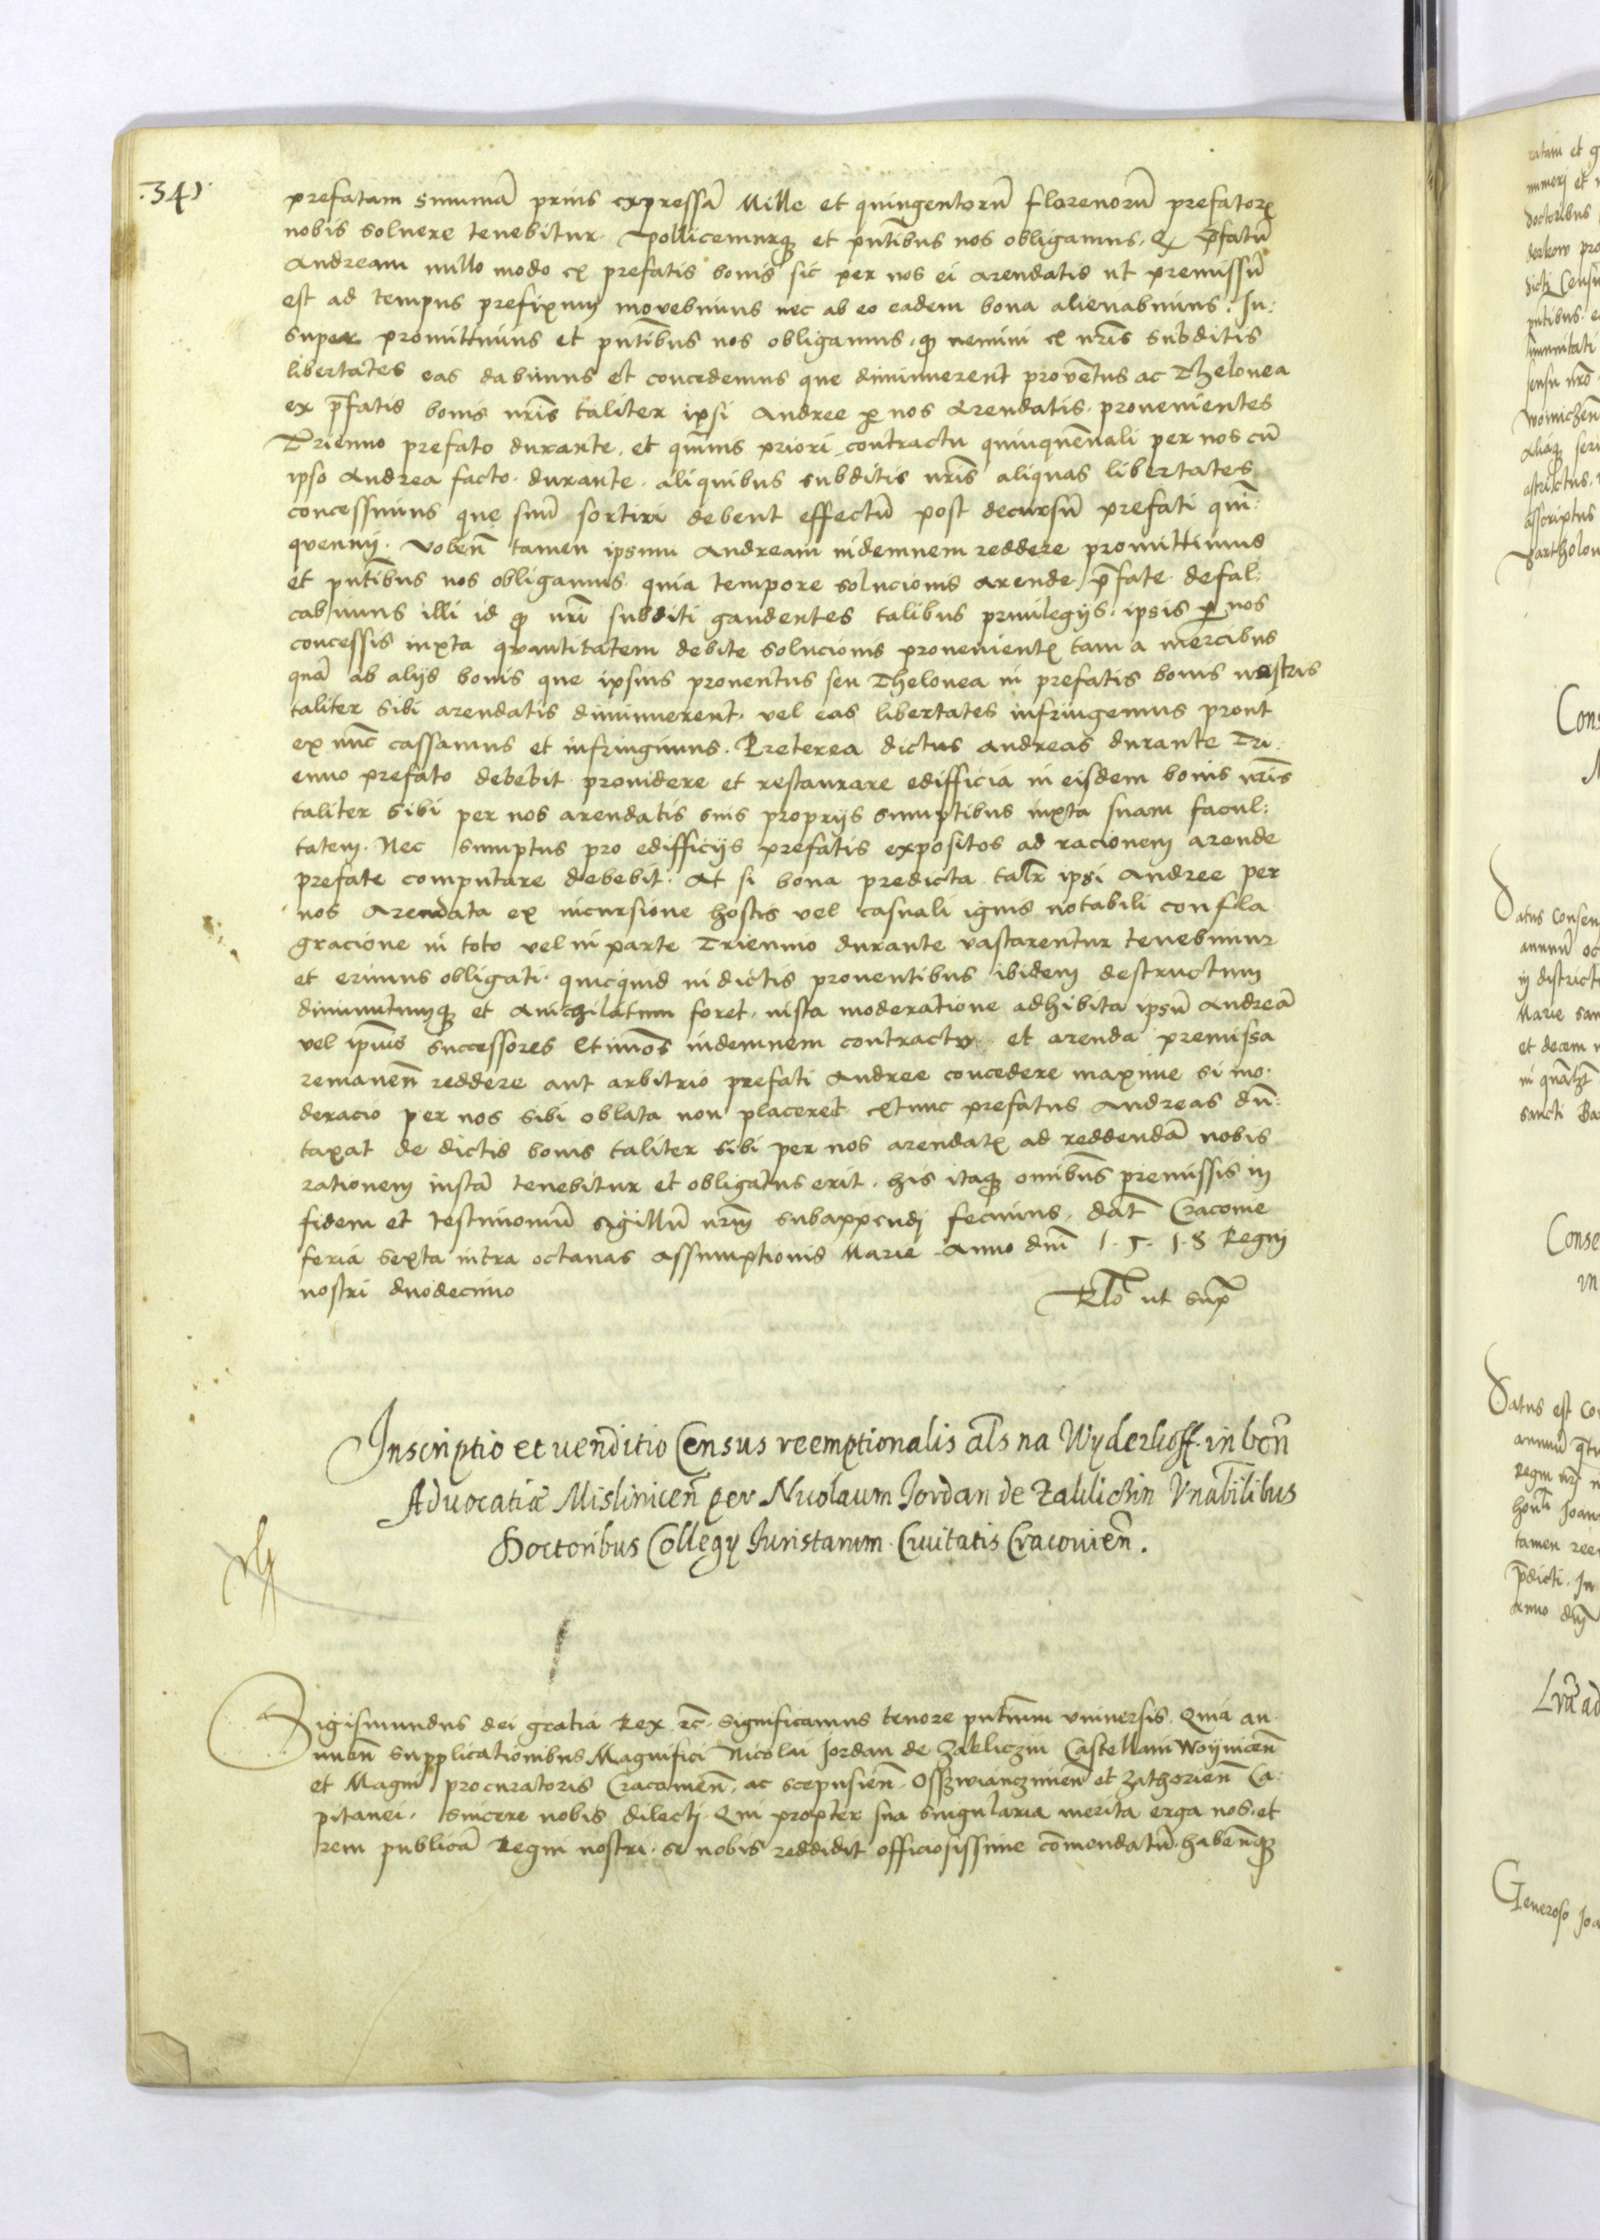 .341.
prefatam summā prius expressā Mille et quingentorū florenorū prefator
nobis soluere tenebitur. Pollicemurqꝫ et pn̄tibus nos obligamus, qꝫ p̄fatū
Andream nullo modo ex prefatis bonis sic per nos ei arendatis ut premissū
est ad tempus prefixum movebimus nec ab eo eadem bona alienabimus. In:
super promittimus et pn̄tibus nos obligamus, qꝫ nemini ex nr̄is subditis
libertates eas dabimus et concedemus que diminuerent proventus ac Thelonea
ex p̄fatis bonis nr̄is taliter ipsi Andree ꝑ nos Arendatis, provenientes
Triennio prefato durante, et quāuis priori contractu quinquēnali per nos cū
ipso Andrea facto, durante, aliquibus subditis nr̄is aliquas libertates
concessimus que suū sortiri debent effectū post decursū prefati quī:
quennij. Volen̄ tamen ipsum Andream indemnem reddere promittimus
et pn̄tibus nos obligamus, quia tempore solucionis arende p̄fate defal:
cabimus illi id qꝫ nr̄i subditi gaudentes talibus privilegijs, ipsis ꝑ nos
concessis iuxta quantitatem debite solucionis provenientꝫ tam a mercibus
quā ab aliis bonis que ipsius proventus seu Thelonea in prefatis bonis nostris
taliter sibi arendatis diminuerent, vel eas libertates infringemus prout
ex nūc cassamus et infringimus. Preterea dictus Andreas durante Tri:
ennio prefato debebit providere et restaurare edifficia in eisdem bonis nr̄is
taliter sibi per nos arendatis suis proprijs sumptibus iuxta suam facul:
tatem. Nec sumptus pro edifficijs prefatis expositos ad racionem arende
prefate computare debebit. At si bona predicta talr̄ ipsi Andree per
nos Arendata ex incursione hostis vel casuali ignis notabili confla
gracione in toto vel in parte Triennio durante vastarentur tenebimur
et erimus obligati, quicquid in dictis proventibus ibidem destructum
diminutumqꝫ et anichilatum foret, iusta moderatione adhibita ipsū Andreā
vel ip̄ius successores etimōs indemnem contractu et arenda premissa
remanen̄ reddere aut arbitrio prefati Andree concedere maxime si mo:
deracio per nos sibi oblata non placeret. Extunc prefatus Andreas dū:
taxat de dictis bonis taliter sibi per nos arendatꝫ ad reddendā nobis
rationem iustā tenebitur et obligatus erit. His itaqꝫ omnibus premissis in
fidem et testimoniū sigillū nr̄m subappendi fecimus. Dat̄ Cracovie
feria sexta intra octavas Assumptionis Marie Anno dnī 1.5.1.8 Regni
nostri duodecimo
Rlō ut supꝫ
Inscriptio et venditio Census reemptionalis al̄s na Wyderkoff in bon̄
Advocatiæ Mislinicen̄ per Nicolaum Jordan de Zaklichin Vn̄abilibus
Doctoribus Collegij Juristarum Civitatis Cracovien̄.
Sigismundus dei gratia Rex ꝛc̄. Significamus tenore pn̄tium universis. Quia an
nuen̄ supplicationibus Magnifici Nicolai Jordan de Zakliczin Castellani Woijnicen̄
et Magni procuratoris Cracovien̄, ac Scepusien̄, Osszwianczimien̄ et Zathorien̄ Ca:
pitanei, sincere nobis dilecti. Qui propter sua singularia merita erga nos, et
rem publicā Regni nostri, se nobis reddidit officiosissime cōmendatū, habenqꝫ